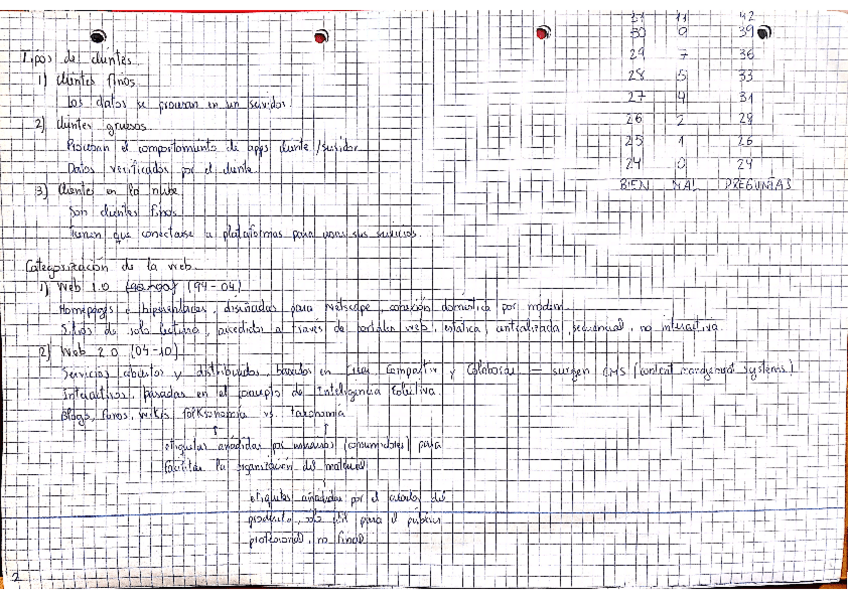 Tipos de clientes
1) Clientes finos
Los datos se procesan en un servidor
2) Clientes gruesos
Procesan el comportamiento de apps cliente/servidor
Datos verificados por el cliente
3) Clientes en la nube
Son clientes finos
Tienen que conectarse a plataformas para usar sus servicios.
Categorización de la web
1) Web 1.0 (94-04)
Homepages e hiperenlaces, diseñadas para Netscape, conexión doméstica por modem
Sitios de solo lectura, accedidos a traves de portales web, estática, centralizada, secuencial, no interactiva
2) Web 2.0 (04-10)
Servicios abiertos y distribuidos, basados en Crear Compartir y Colaborar — surgen CMS (content management systems)
Interactivos, basadas en el concepto de Inteligencia Colectiva.
Blogs, foros, wikis folksonomía vs. taxonomía
etiquetas añadidas por usuarios (consumidores) para
facilitar la organización del material
etiquetas añadidas por el creador del
producto, solo útil para el público
profesional, no final
31 11 42
30 9 39
29 7 36
28 5 33
27 4 31
26 2 28
25 1 26
24 0 24
BIEN MAL PREGUNTAS
2